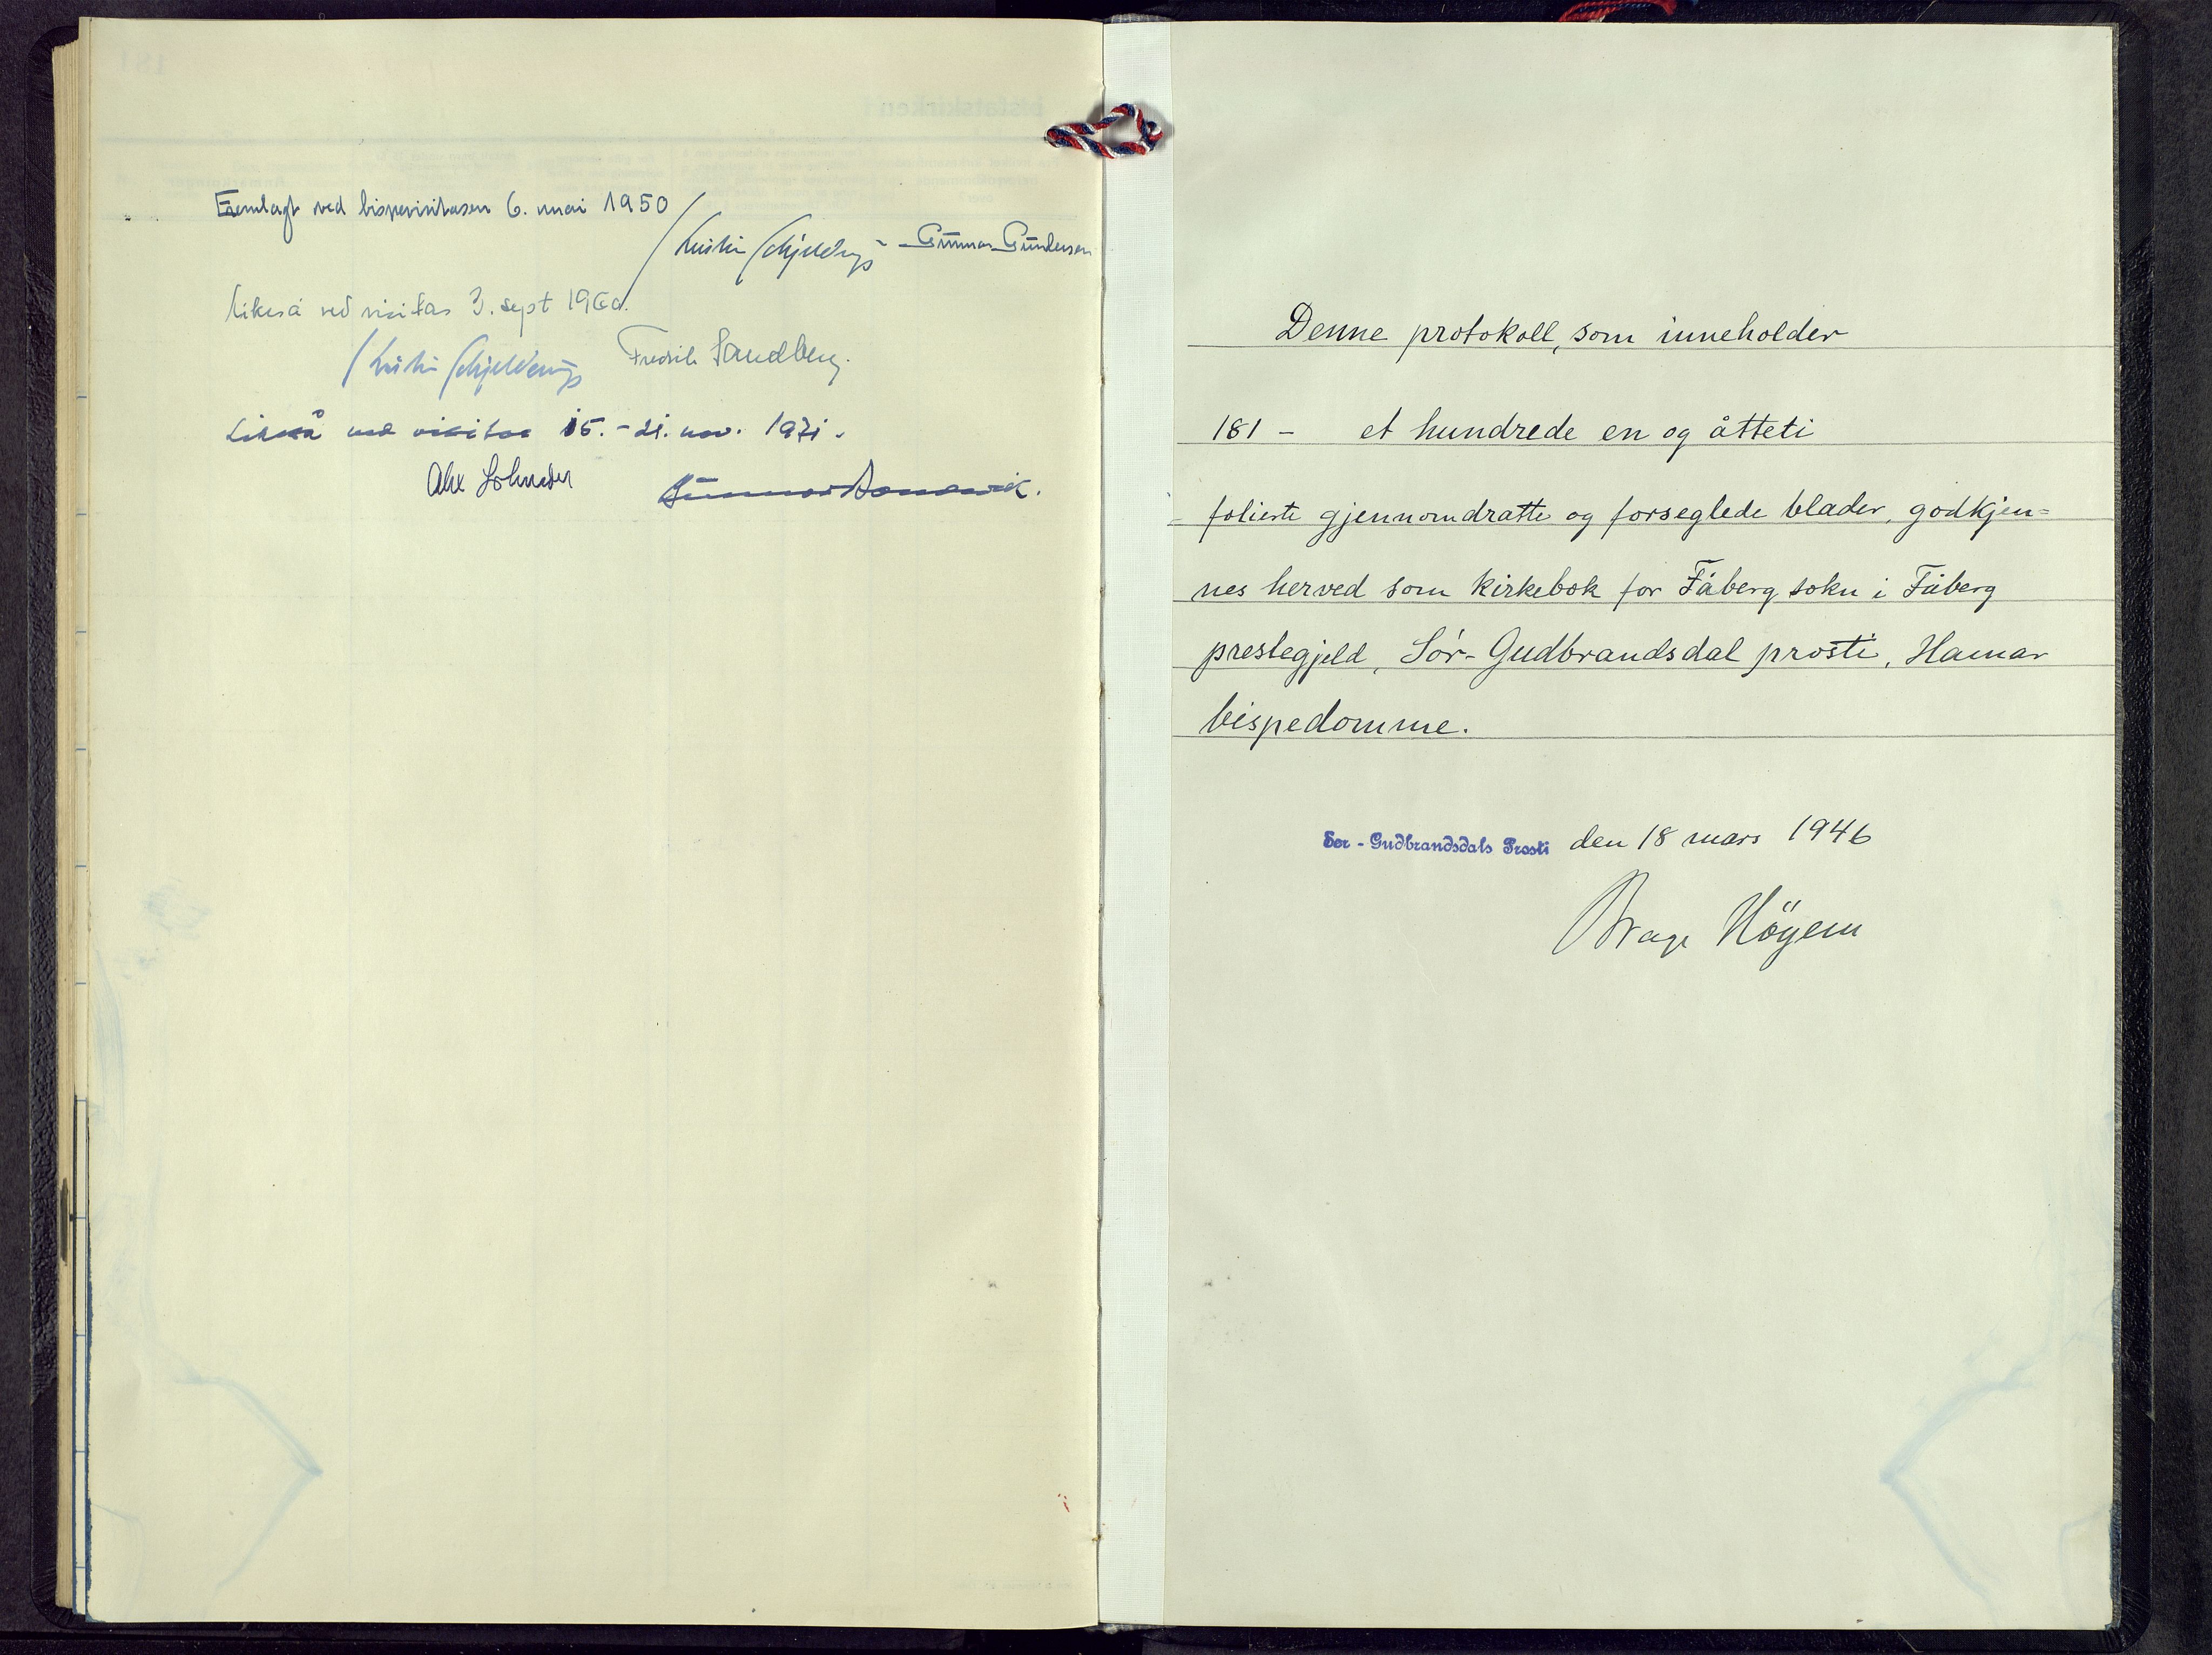 Fremlagt ved bispevisitasen 6. mai 1950
Kristian Schjelderup - Gunnar Gundersen
Likeså ved visitas 3. sept 1960.
Kristian Schjelderup Fredrik Sandberg.
Likeså ved visitas 15.-21. nov. 1971.
Alex Johnson Gunnar
Denne protokoll, som inneholder
181 - et hundrede en og åtteti
folierte gjennomdratte og forseglede blader, godkjen=
nes herved som kirkebok for Fåberg sokn i Fåberg
prestegjeld, Sör-Gudbrandsdal prosti, Hamar
bispedømme.
Sør - Gudbrandsdals Prosti den 18 mars 1946
Brage Höyem